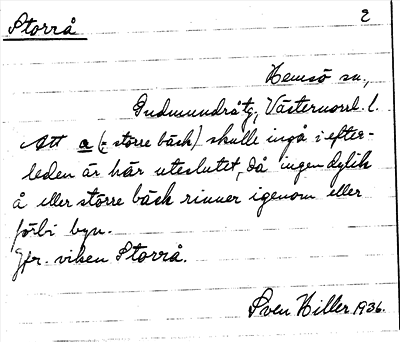 2
Storrå
Hemsö sn.,
Gudmundråtg, Västernorrl. l.
Att a (= större bäck) skulle ingå i efter-
leden är här uteslutet, då ingen dylik
å eller större bäck rinner igenom eller
förbi byn.
Jfr. viken Storrå.
Sven Hiller 1936.